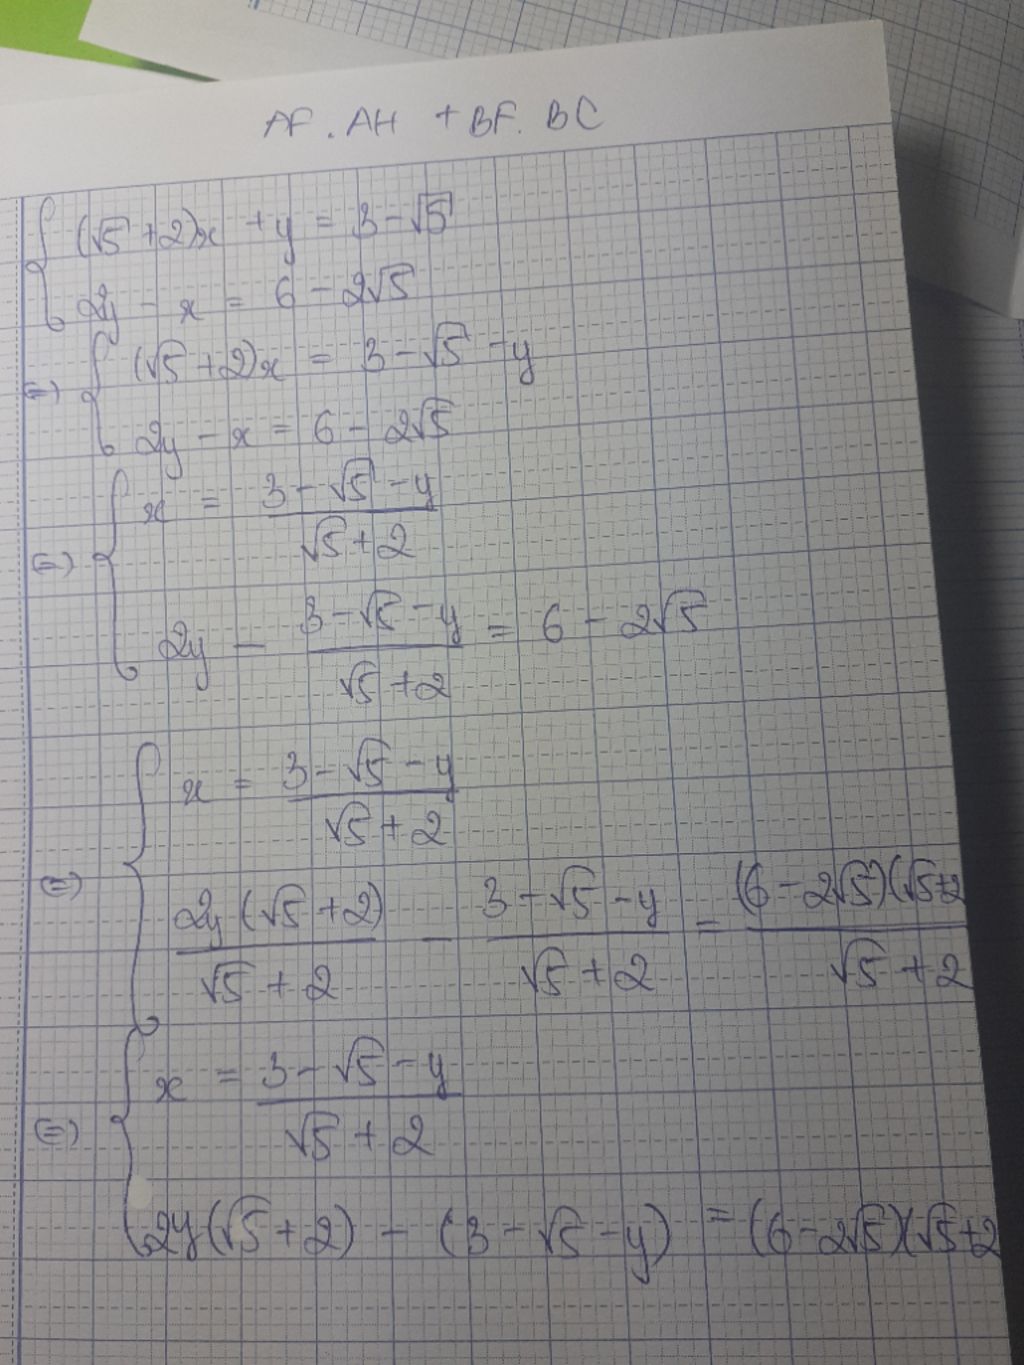 AF . AH + BF. BC
{ (√5 + 2)x + y = 3 - √5
2y - x = 6 - 2√5
(=) { (√5 + 2)x = 3 - √5 - y
2y - x = 6 - 2√5
(=) { x = (3 - √5 - y)/(√5 + 2)
2y - (3 - √5 - y)/(√5 + 2) = 6 - 2√5
(=) { x = (3 - √5 - y)/(√5 + 2)
2y (√5 + 2)/(√5 + 2) - (3 - √5 - y)/(√5 + 2) = (6 - 2√5)(√5+2/(√5 + 2)
(=) { x = (3 - √5 - y)/(√5 + 2)
2y(√5 + 2) - (3 - √5 - y) = (6 - 2√5)(√5+2